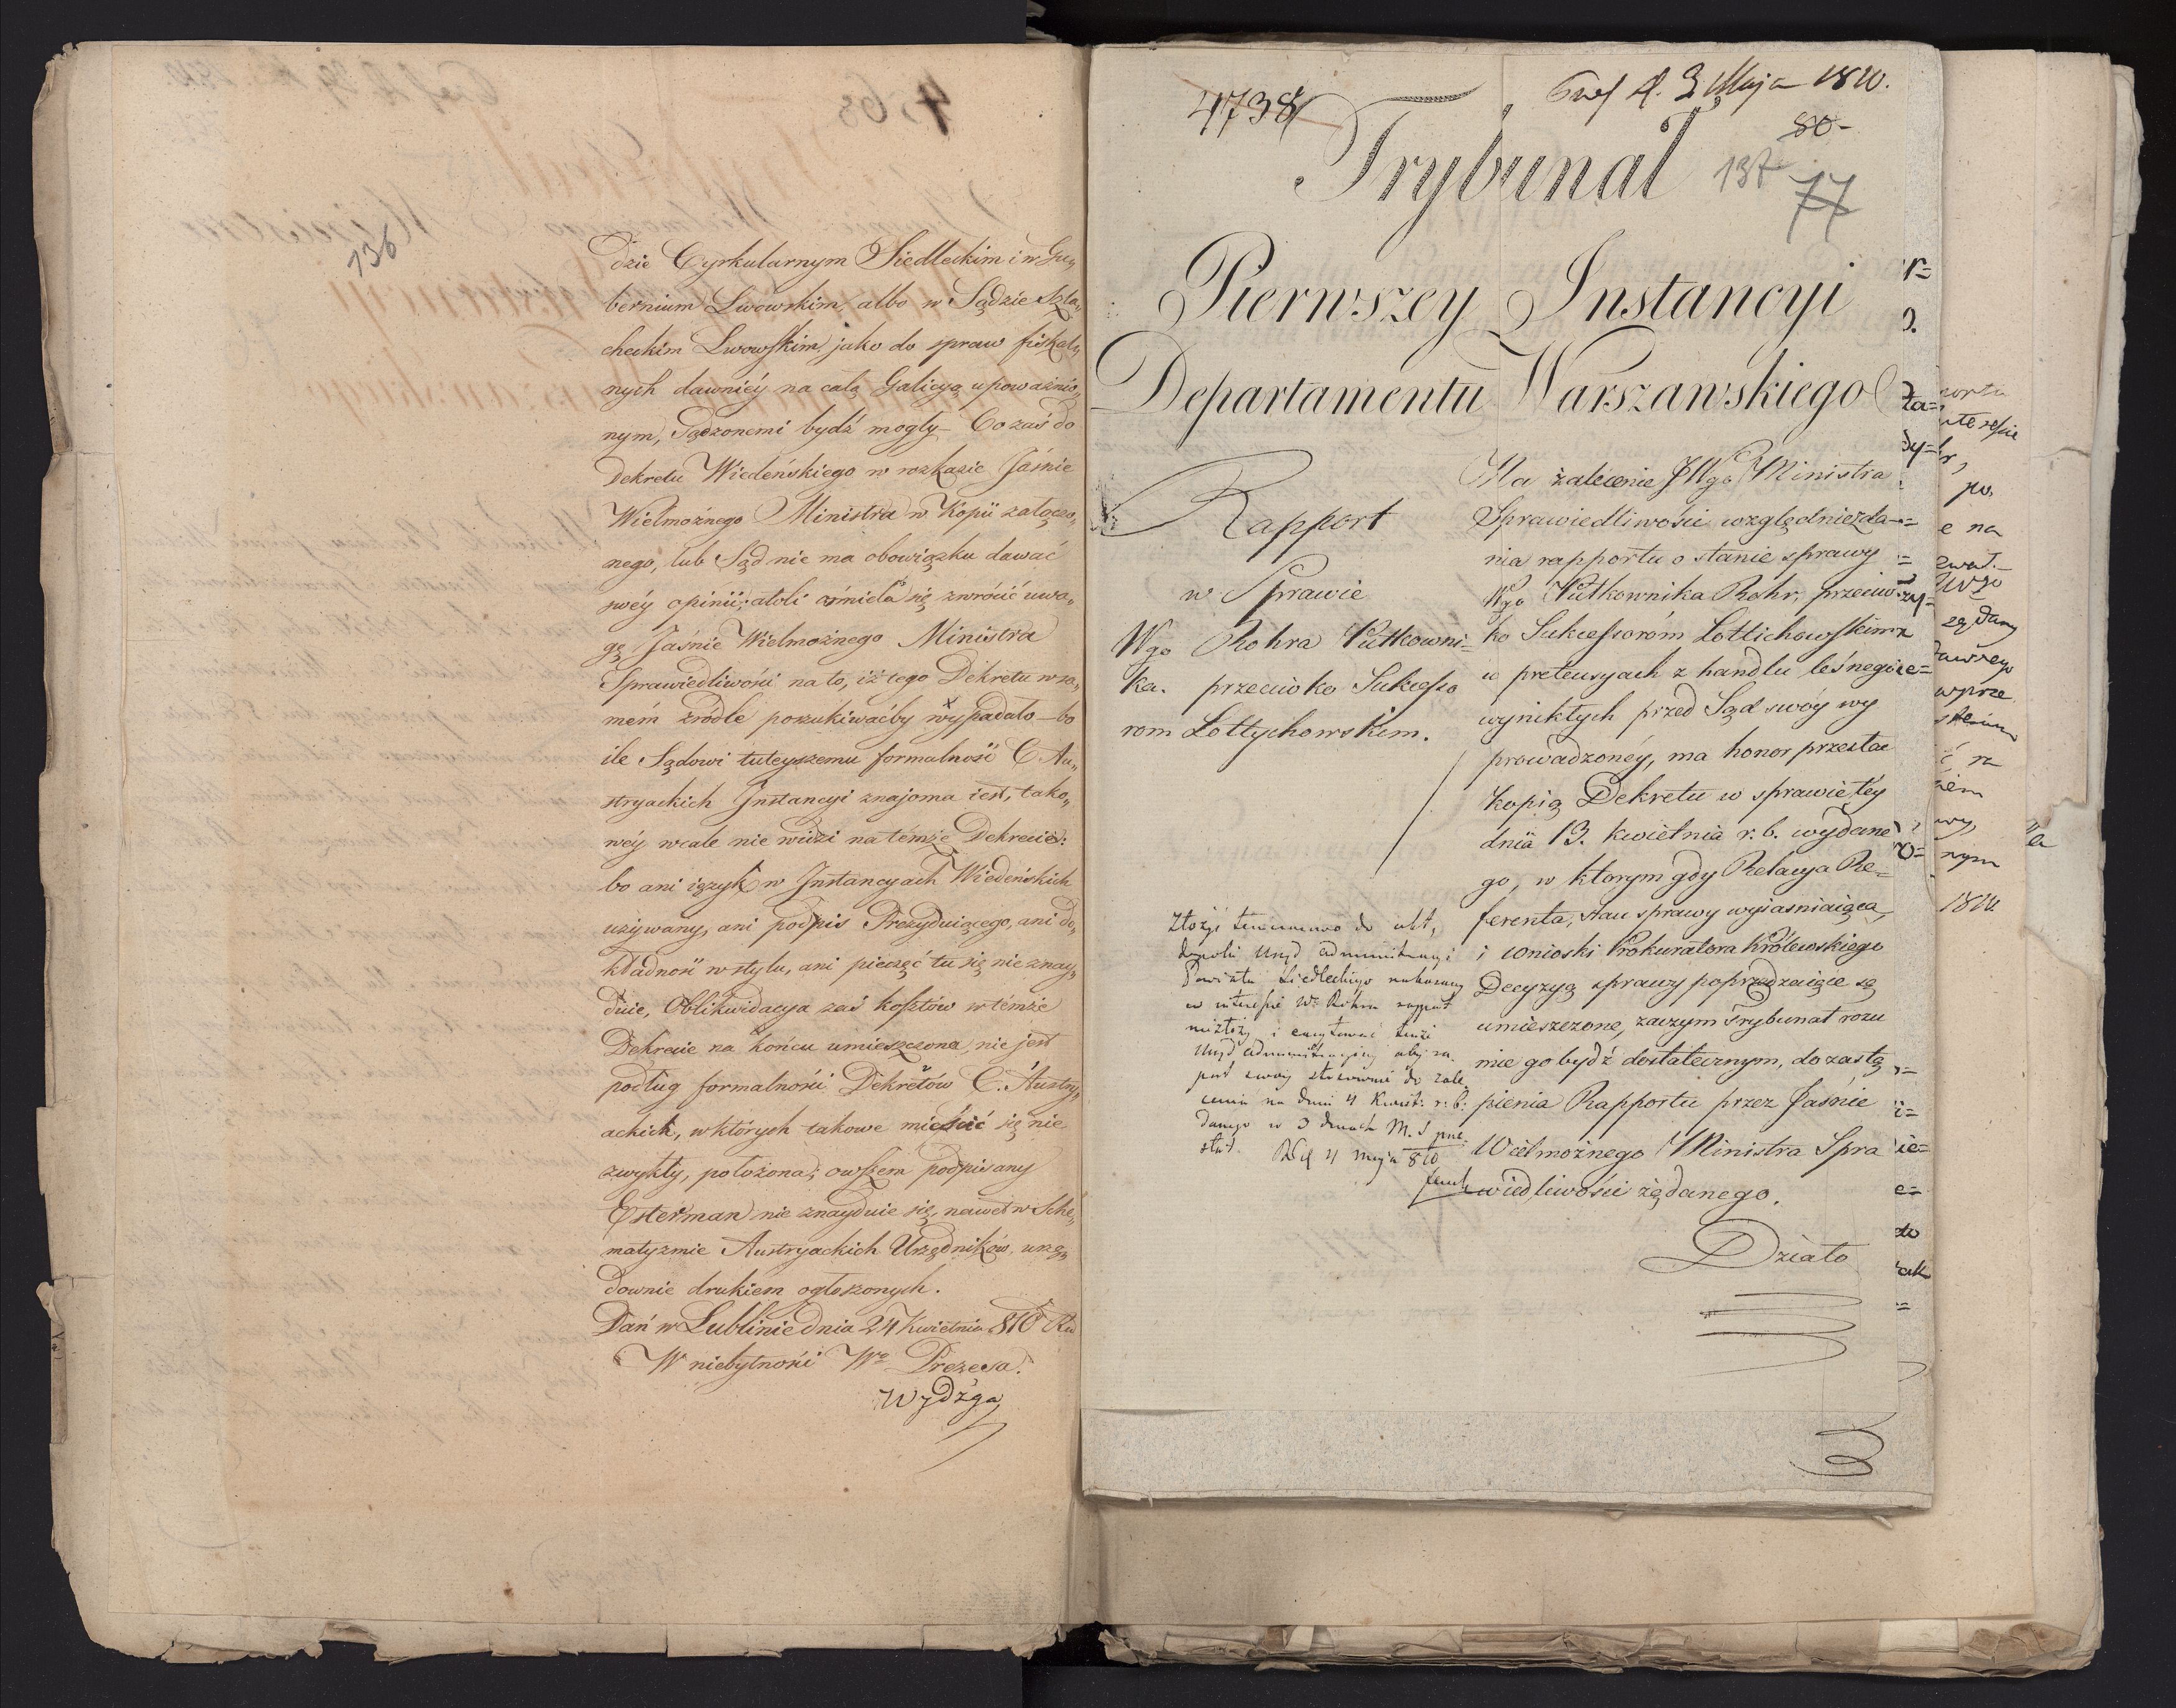 136
dzie Cyrkularnym Siedleckim i w Gu„
bernium Lwowskim, albo w Sądzie Szla„
checkim Lwowskim, jako do spraw fiskal„
nych dawniéy na całą Galicyą upoważnio„
nym, sądzonemi bydź mogły – Co zaś do
Dekretu Wiedeńskiego w rozkazie Jaśnie
Wielmożnego Ministra w Kopii załączo„
nego, lub Sąd nie ma obowiązku dawać
swéy opinii; atoli ośmiela się zwrócić uwa„
gę Jaśnie Wielmożnego Ministra
Sprawiedliwości na to, iż tego Dekretu w sa„
mém źródle poszukiwaćby wypadało – bo
ile Sądowi tuteyszemu formalność C. Au„
stryackich Instancyi znajoma iest, tako„
wéy wcale nie widzi na témże Dekrecie:
bo ani ięzyk w Instancyach Wiedeńskich
używany, ani podpis Prezyduiącego, ani do„
kładność w stylu, ani pieczęć tu się nie znay„
duie, Oblikwidacya zaś kosztów w témże
Dekrecie na końcu umieszczona, nie jest
podług formalności Dekretów C. Austry„
ackich, w których takowe mieścić się nie
zwykły, położona; owszem podpisany
Esterman nie znayduie się, nawet w Sche„
matyzmie Austryackich Urzędników, urzę„
downie drukiem ogłoszonych.
Dań w Lublinie dnia 24 Kwietnia 810 Ru
W niebytności Wo Prezesa.
Wydżga
4738
d. 3 Maja 1810.
80
Trybunał
137
77
Pierwszey Instancyi
Departamentu Warszawskiego
Rapport
w Sprawie
Wgo Rohra Pułkowni=
ka. przeciwko Sukcesso
rom Lottychowskim.
Na zalecenie JWgo Ministra
Sprawiedliwości względnie zda-
nia rapportu o stanie sprawy
Wgo Pułkownika Rohr, przeciw
ko Sukcessorom Lottichowskim
o pretensyach z handlu leśnego
wynikłych przed Sąd swóy wy
prowadzonéy, ma honor przesłać
kopią Dekretu w sprawie téy
dnia 13. kwietnia r. b. wydane
go, w którym gdy Relacya Re=
ferenta, stan sprawy wyiasniaiąca,
i wnioski Prokuratora Królewskiego
Decyzyą sprawy poprzedzaiące są
umieszczone, zaczym Trybunał rozu
mie go bydź dostatecznym, do zastą
pienia Rapportu przez Jaśnie
Wielmożnego Ministra Spra
wiedliwości żądanego.
Działo
Złożyć do akt,
dopoki Urząd administracyi
Powiatu Siedleckiego nakazany
w interesie Wo Rohra rapport
niezłoży i
Urząd administracyiny aby ra
port swóy stosownie do zale
cenia na dniu 4 Kwiet: r: b:
danego w 3 dniach M. S prze
słał. 4 Maja 810